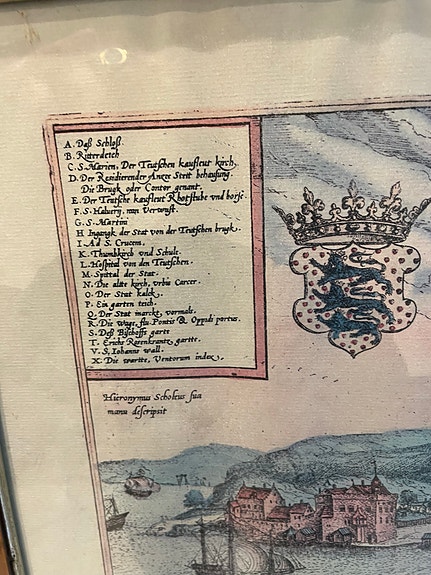 A. Daß Schloß.
B. Ritterdeich
C. S. Marien, Der Teutschen kaufleut kirch,
D. Der Residierender Anze Stett behausung.
Die Brugk oder Contor genant.
E. Der Teutsche kaufleut vnd borse
F. S. Haluern, nun Verwust.
G. S. Martini
H Ingangk der Stat von der Teutschen brugk.
I. Ad S. Crucem.
K. Thumbkirch vnd Schule.
L. Hospital von den Teutschen.
M. Spittal der Stat.
N. Die allte kirch, vrbis Carcer.
O. Der Stat kalck.
P. Ein garten teich.
Q. Der Stat marckt, vormals.
R. Die Wage, siu Pontis & Oppidi portus.
S. Deß Bischoffs garte
T. Erichs Rosenkrantz gartte.
V. S. Iohanns wall.
X. Die wartte, Ventorum index.
Hieronymus Scholeus sua
manu descripsit